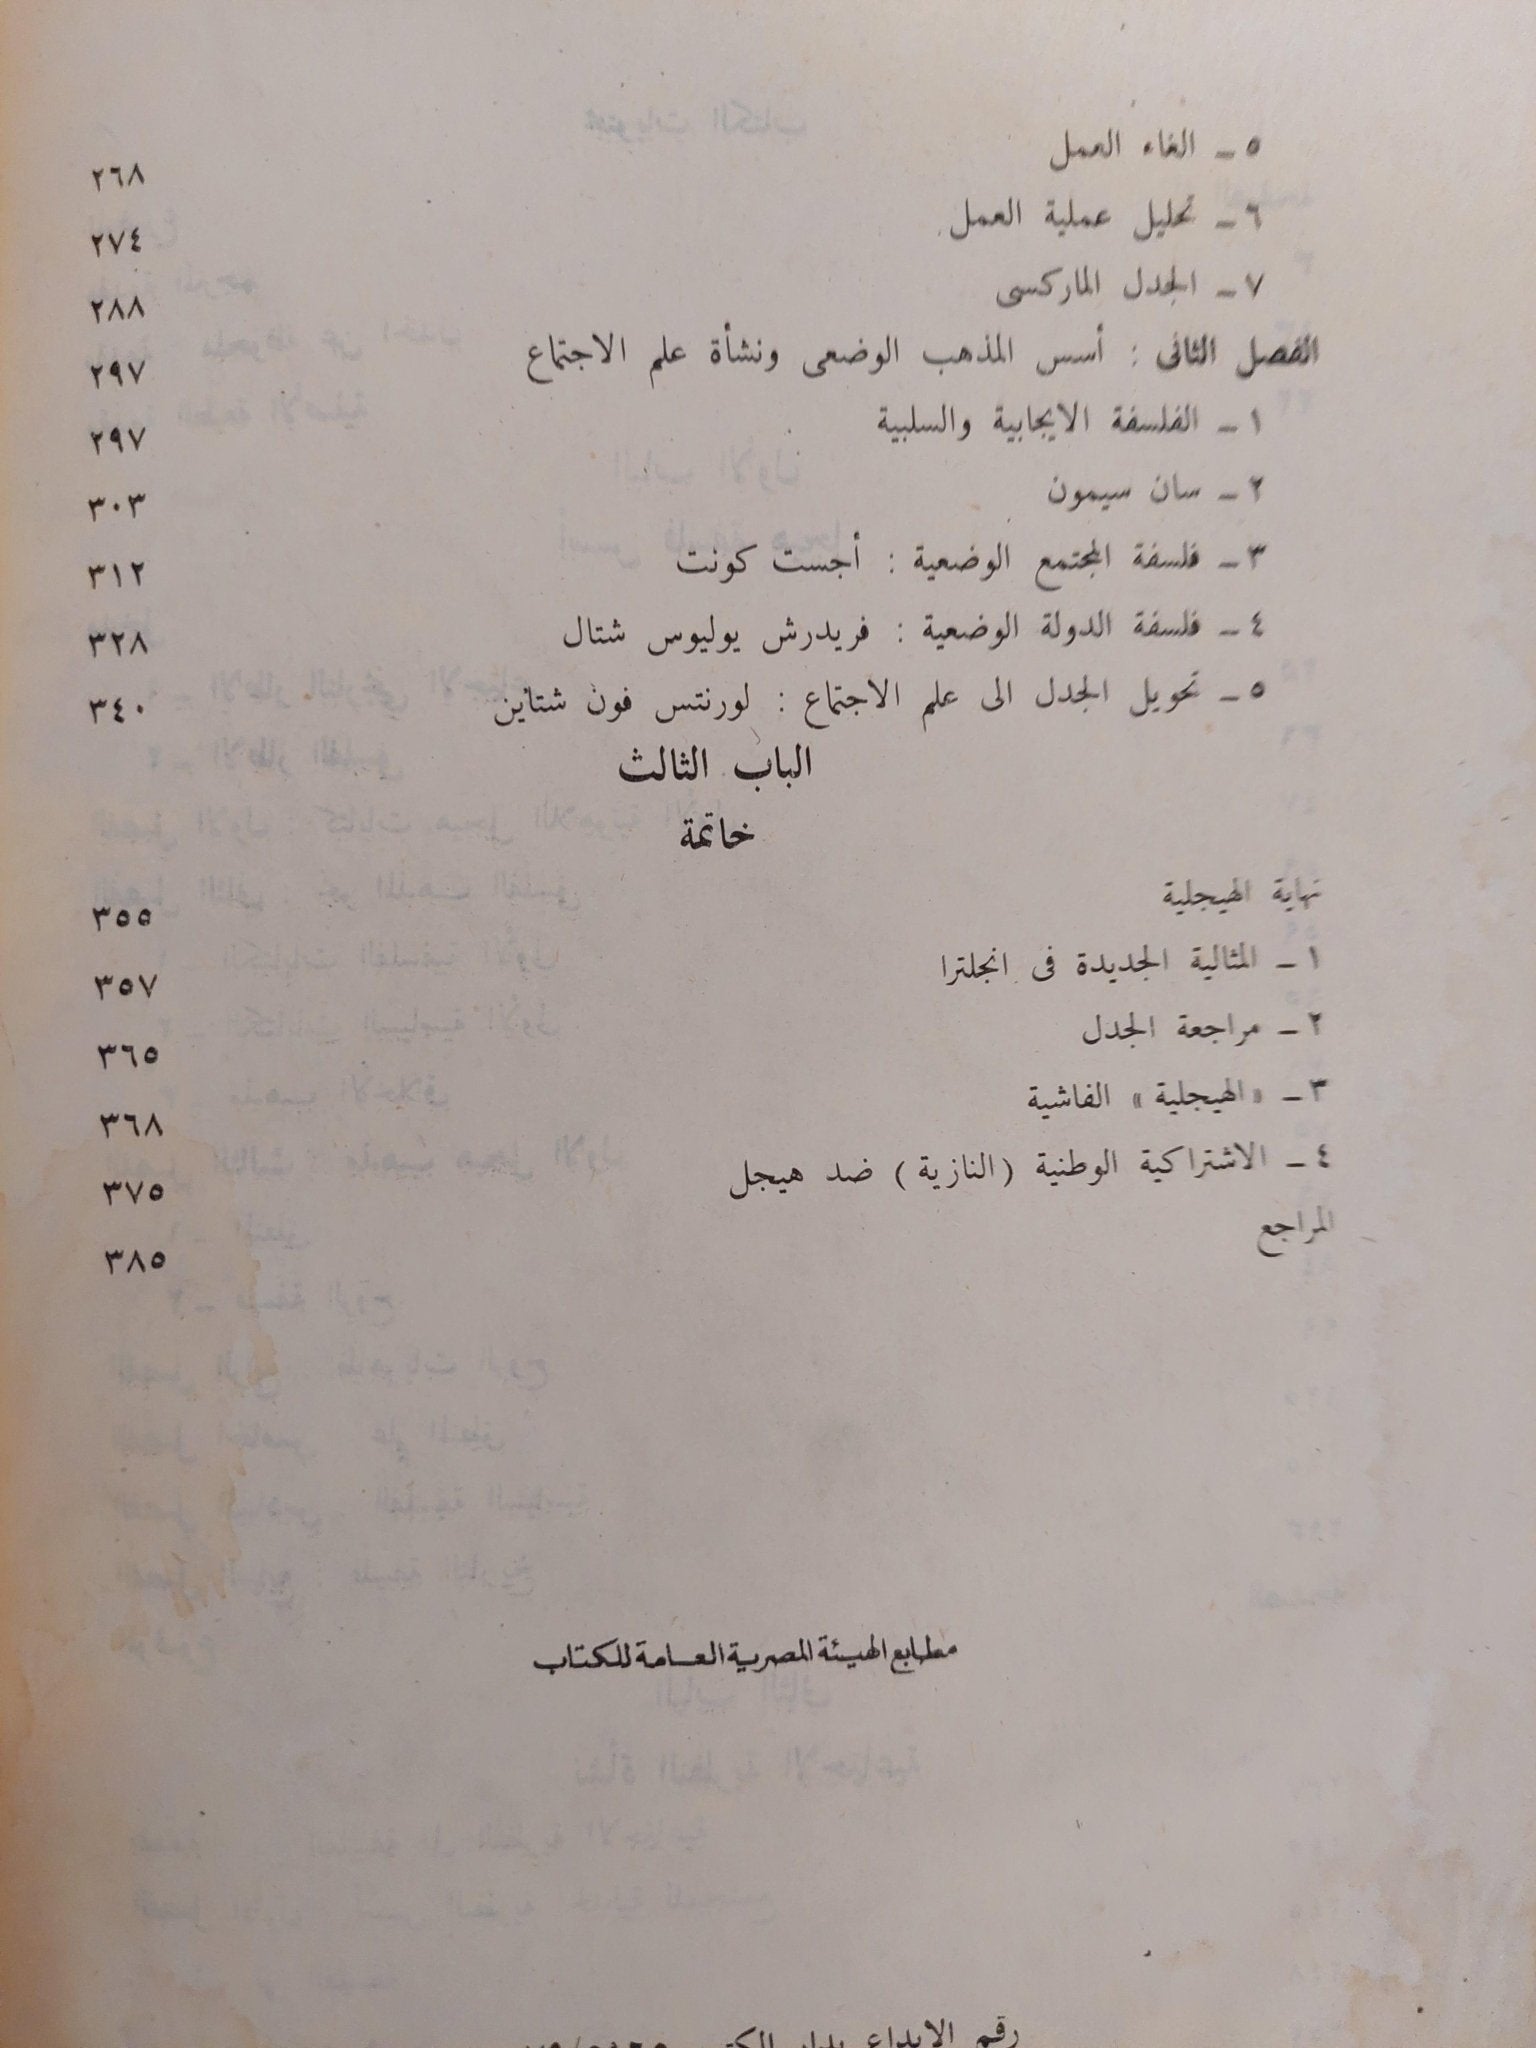 ٥ ــ الغاء العمل ٢٦٨
٦ ــ تحليل عملية العمل ٢٧٤
٧ ــ الجدل الماركسى ٢٨٨
الفصل الثانى : أسس المذهب الوضعى ونشأة علم الاجتماع ٢٩٧
١ ــ الفلسفة الايجابية والسلبية ٢٩٧
٢ ــ سان سيمون ٣٠٣
٣ ــ فلسفة المجتمع الوضعية : أجست كونت ٣١٢
٤ ــ فلسفة الدولة الوضعية : فريدرش يوليوس شتال ٣٢٨
٥ ــ تحويل الجدل الى علم الاجتماع : لورنتس فون شتاين ٣٤٠
الباب الثالث
خاتمة
نهاية الهيجلية ٣٥٥
١ ــ المثالية الجديدة فى انجلترا ٣٥٧
٢ ــ مراجعة الجدل ٣٦٥
٣ ــ « الهيجلية » الفاشية ٣٦٨
٤ ــ الاشتراكية الوطنية ( النازية ) ضد هيجل ٣٧٥
المراجع ٣٨٥
مطابع الهيئة المصرية العامة للكتاب
رقم الايداع بدار الكتب